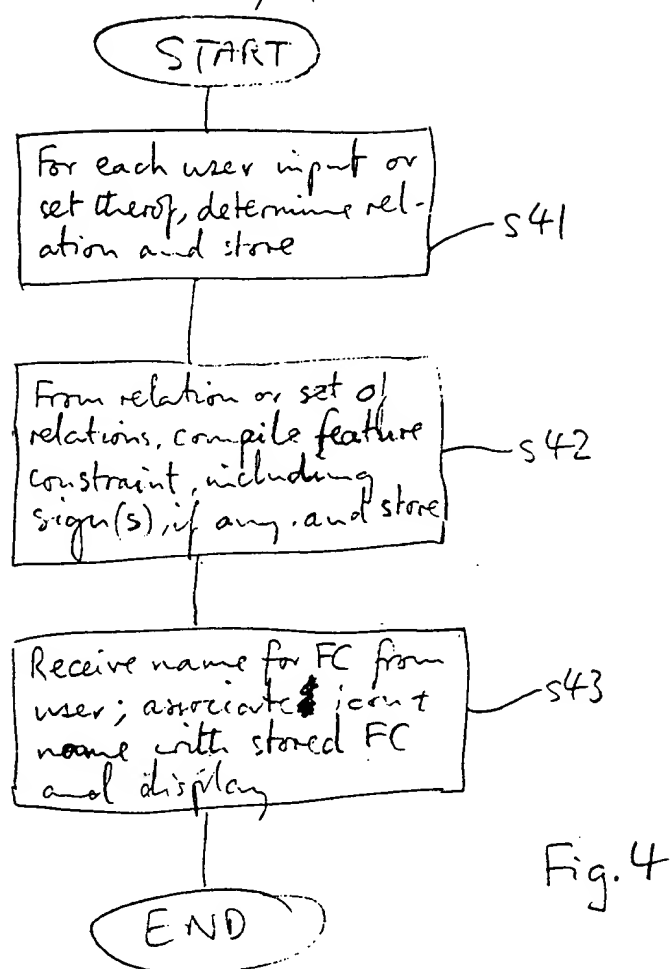 START
For each user input or
set therof, determine rel-
ation and store
s41
From relation or set of
relations, compile feature
constraint, including
sign(s), if any, and store
s42
Receive name for FC from
user; associate icon +
name with stored FC
and display
s43
END
Fig. 4